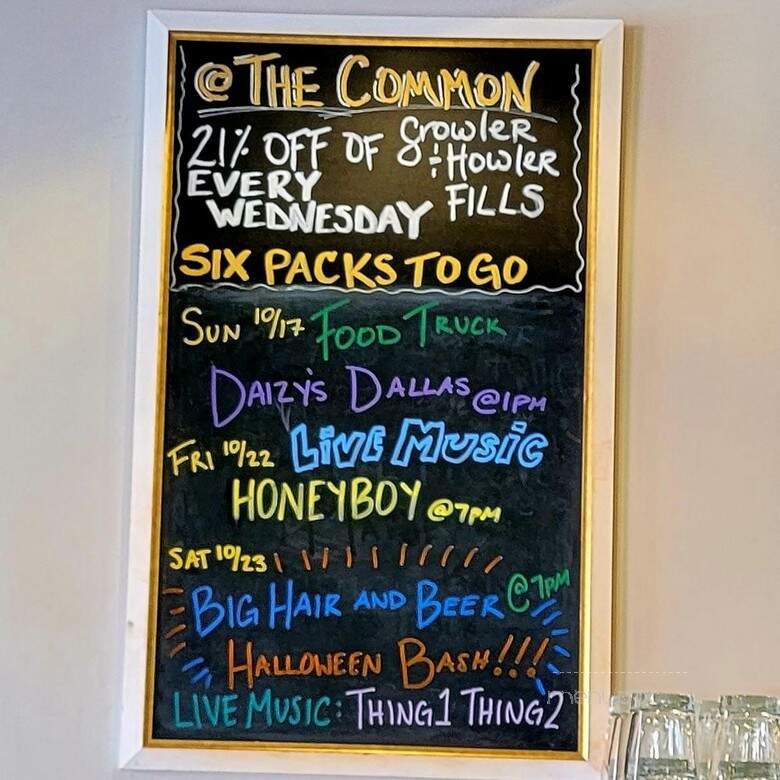 @ THE COMMON
21% OFF OF Growler
÷ Howler
EVERY FILLS
WEDNESDAY
SIX PACKS TO GO
SUN 10/17 FOOD TRUCK
DAIZY'S DALLAS @1PM
FRI 10/22 LIVE MUSIC
HONEYBOY @7PM
SAT 10/23
BIG HAIR AND BEER @7PM
HALLOWEEN BASH!!!
LIVE MUSIC: THING1 THING2